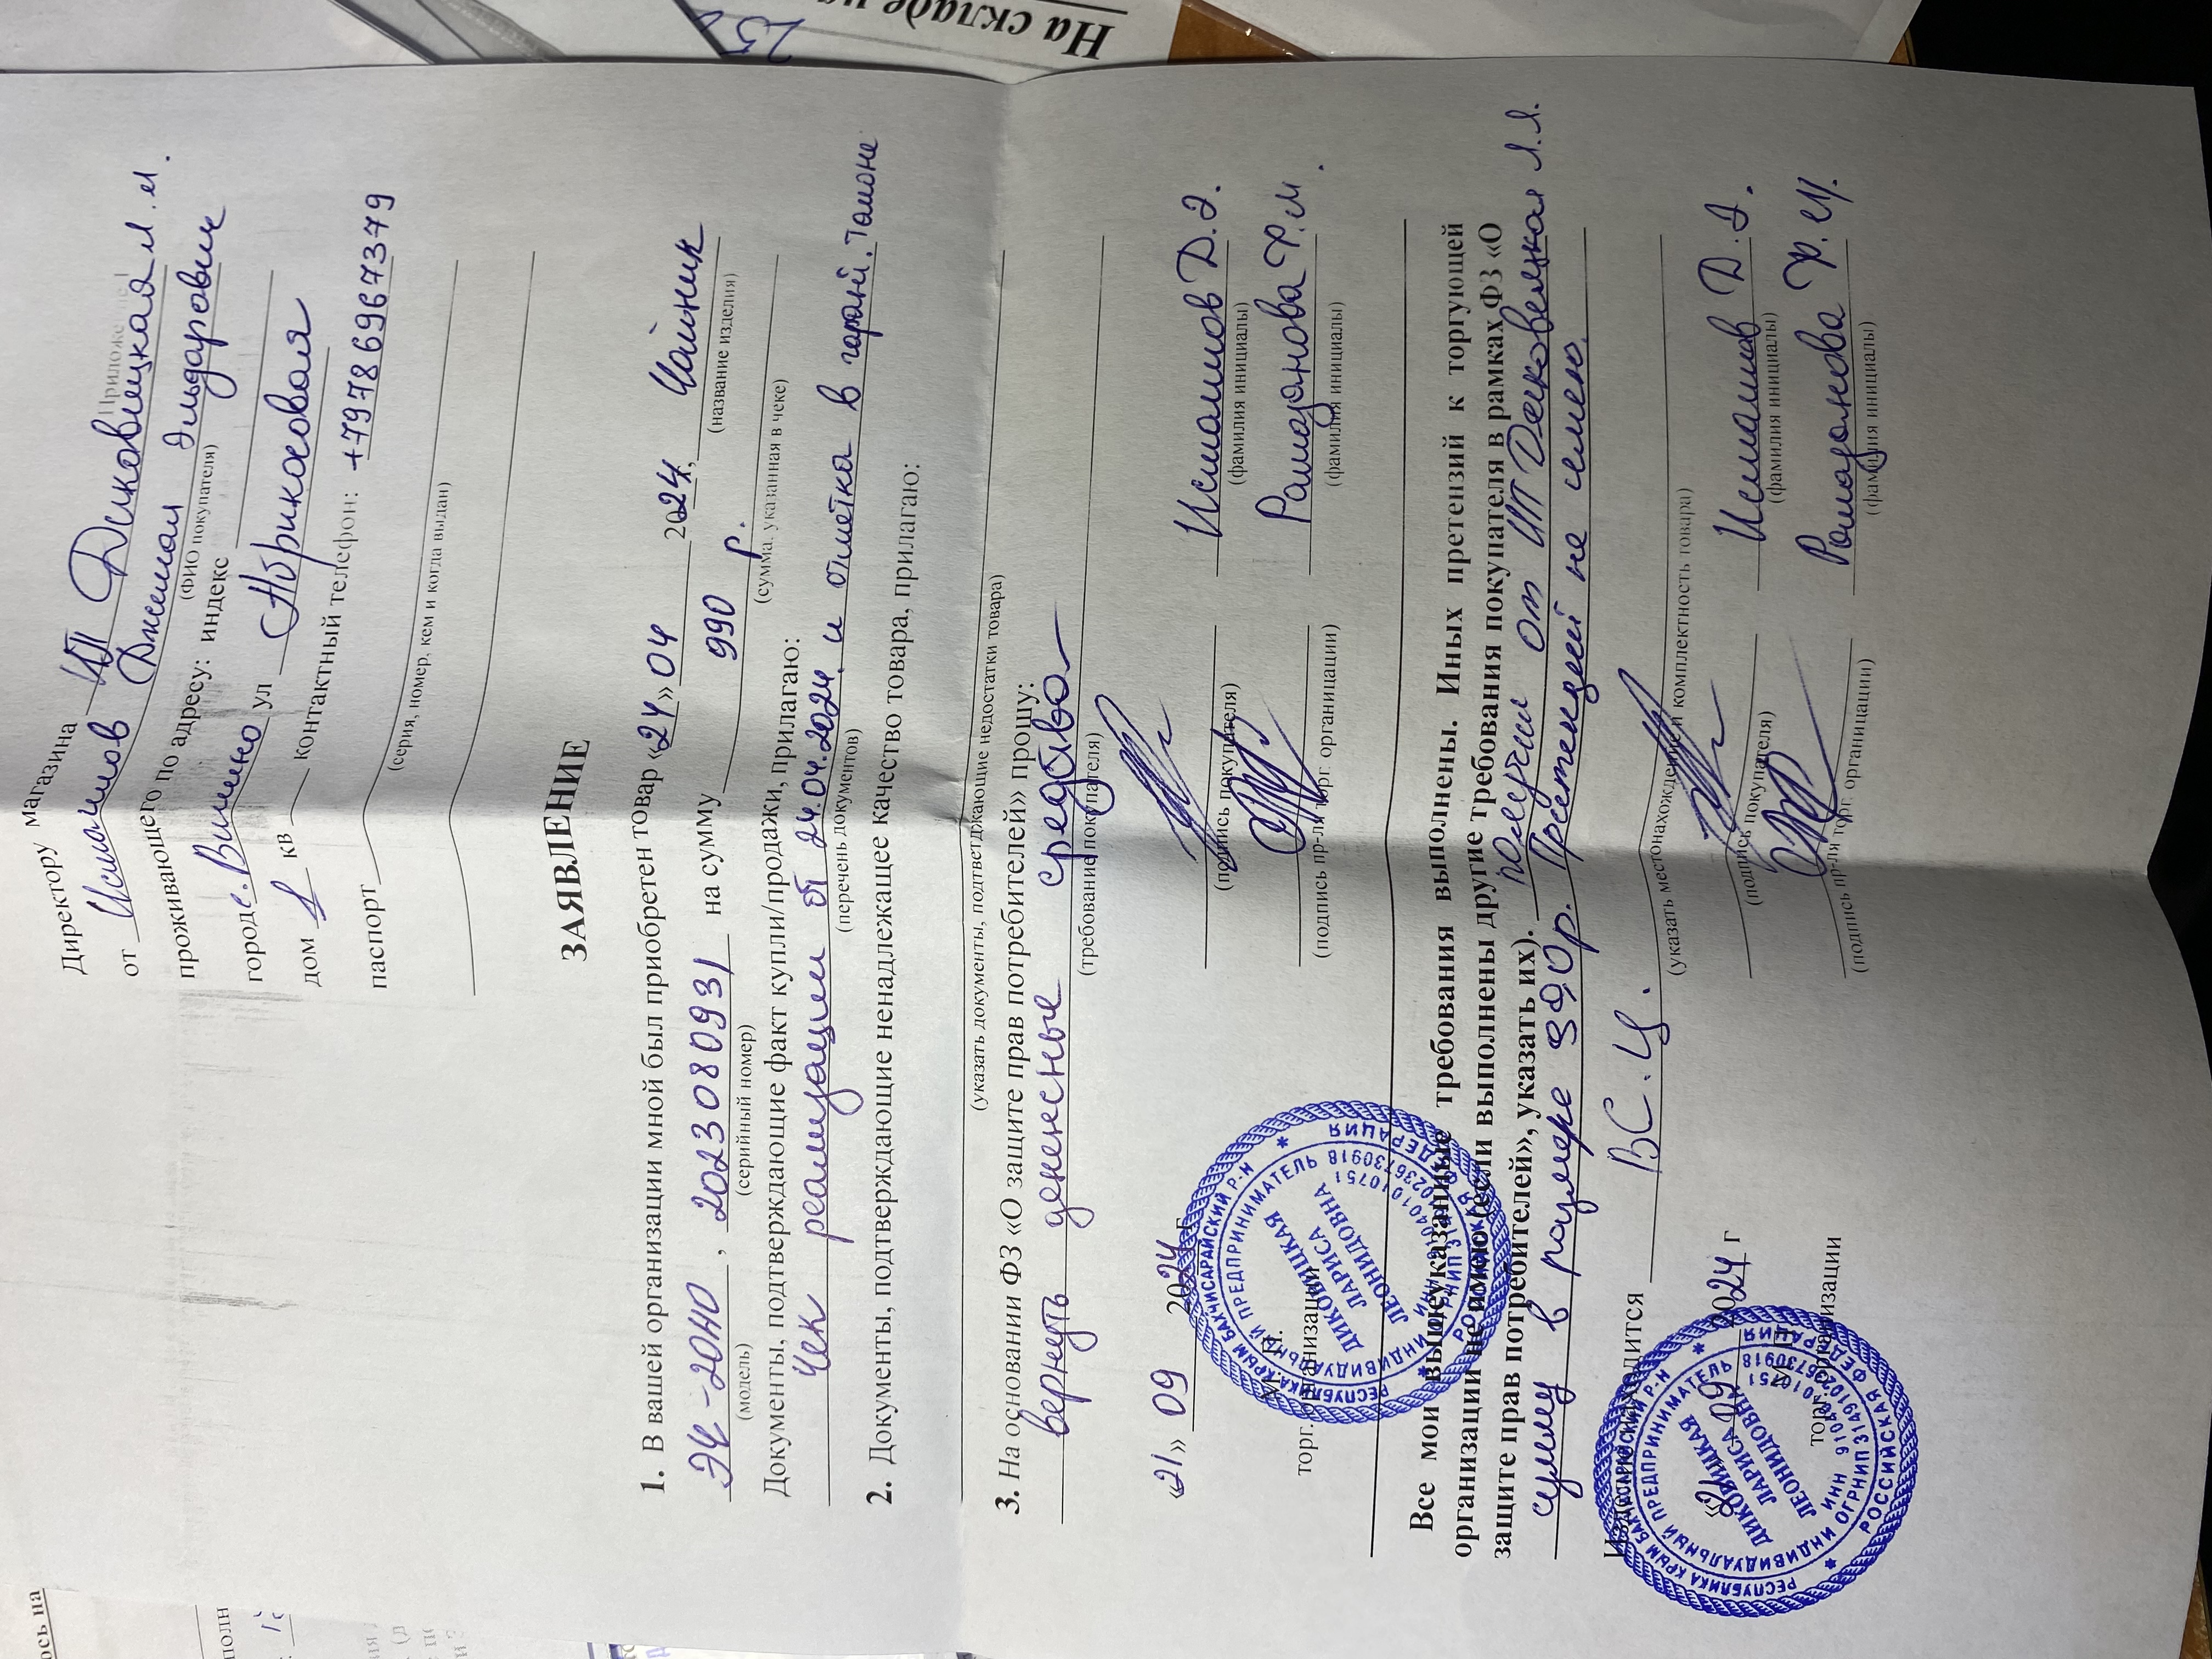 На складе
25
Директору магазина ИП Диковицкая Л.Л.
от Исмаилов Джемал Эльдарович
(ФИО покупателя)
проживающего по адресу: индекс
город с. Вилино ул Абрикосовая
дом 1 кв — контактный телефон: +79786967379
паспорт
(серия, номер, кем и когда выдан)
ЗАЯВЛЕНИЕ
1. В вашей организации мной был приобретен товар «24» 04 2024, Чайник
(название изделия)
ЭЧ-20Н0, 2023080931 на сумму 990 р.
(модель) (серийный номер) (сумма, указанная в чеке)
Документы, подтверждающие факт купли/продажи, прилагаю:
Чек реализации от 24.04.2024. и отметка в гарант. талоне
(перечень документов)
2. Документы, подтверждающие ненадлежащее качество товара, прилагаю:
(указать документы, подтверждающие недостатки товара)
3. На основании ФЗ «О защите прав потребителей» прошу:
вернуть денежные средства
(требования покупателя)
«21» 09 2024 г
Исмаилов Д.Э.
(подпись покупателя) (фамилия инициалы)
М.П.
торг. организации
Рамазанова Ф.М.
(подпись пр-ля торг. организации) (фамилия инициалы)
РЕСПУБЛИКА КРЫМ БАХЧИСАРАЙСКИЙ Р-Н
РОССИЙСКАЯ ФЕДЕРАЦИЯ
ИНДИВИДУАЛЬНЫЙ ПРЕДПРИНИМАТЕЛЬ
ДИКОВИЦКАЯ
ЛАРИСА
ЛЕОНИДОВНА
Все мои вышеуказанные требования выполнены. Иных претензий к торгующей
организации не имею (если выполнены другие требования покупателя в рамках ФЗ «О
защите прав потребителей», указать их). получил от ИП Диковицкая Л.Л.
сумму в размере 990р. Претензией не имею.
Изделие находится В С.Ц.
(указать местонахождение и комплектность товара)
«21» 09 2024 г
Исмаилов Д.Э.
(подпись покупателя) (фамилия инициалы)
М.П.
торг. организации
Рамазанова Ф.М.
(подпись пр-ля торг. организации) (фамилия инициалы)
РЕСПУБЛИКА КРЫМ БАХЧИСАРАЙСКИЙ Р-Н
РОССИЙСКАЯ ФЕДЕРАЦИЯ
ИНДИВИДУАЛЬНЫЙ ПРЕДПРИНИМАТЕЛЬ
ДИКОВИЦКАЯ
ЛАРИСА
ЛЕОНИДОВНА